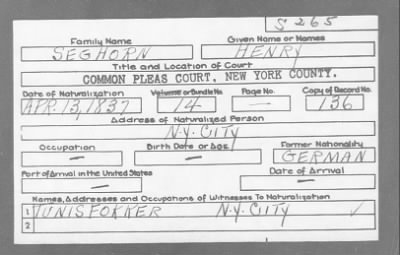 S 265
Family Name Given Name or Names
SEGHORN HENRY
Title and Location of Court
COMMON PLEAS COURT, NEW YORK COUNTY.
Date of Naturalization Volume or Bundle No. Page No. Copy of Record No.
APR. 13, 1837 14 — 136
Address of Naturalized Person
N.Y. CITY
Occupation Birth Date or Age Former Nationality
— — GERMAN
Port of Arrival in the United States Date of Arrival
— —
Names, Addresses and Occupations of Witnesses To Naturalization
1 TUNIS FOKKER N.Y. CITY ✓
2